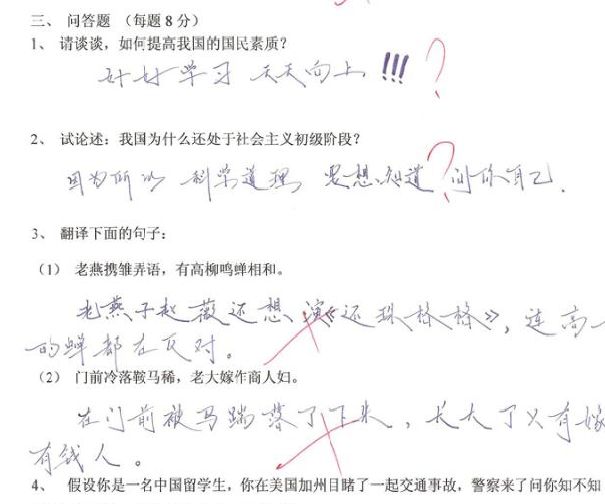 三、 问答题 （每题 8 分）
1、 请谈谈，如何提高我国的国民素质？
好好学习 天天向上!!!
?
2、 试论述：我国为什么还处于社会主义初级阶段？
因为所以 科学道理 要想知道 问你自己.
?
3、 翻译下面的句子：
（1） 老燕携雏弄语，有高柳鸣蝉相和。
老燕子赵薇还想演《还珠格格》，连高一
的蝉都在反对。
（2） 门前冷落鞍马稀，老大嫁作商人妇。
在门前被马踹落了下来，长大了又有嫁
有钱人。
4、 假设你是一名中国留学生，你在美国加州目睹了一起交通事故，警察来了问你知不知